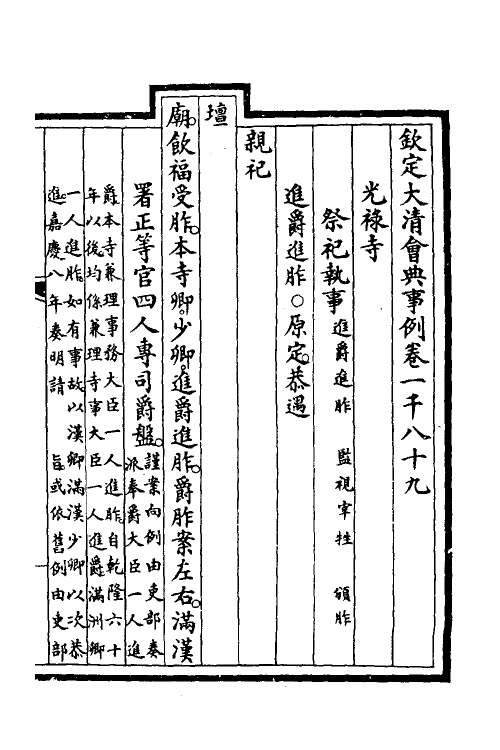 欽定大清會典事例卷一千八十九
光祿寺
祭祀執事 進爵進胙 監視宰牲 頒胙
進爵進胙○原定恭遇
親祀
壇
廟飲福受胙本寺卿少卿進爵進胙爵胙案左右滿漢
署正等官四人專司爵盤謹案向例由吏部奏
派奉爵大臣一人進
爵本寺兼理事務大臣一人進胙自乾隆六十
年以後均係兼理寺事大臣一人進爵滿洲卿
一人進胙如有事故以漢卿滿漢少卿以次恭
進嘉慶八年奏明請 旨或依舊例由吏部